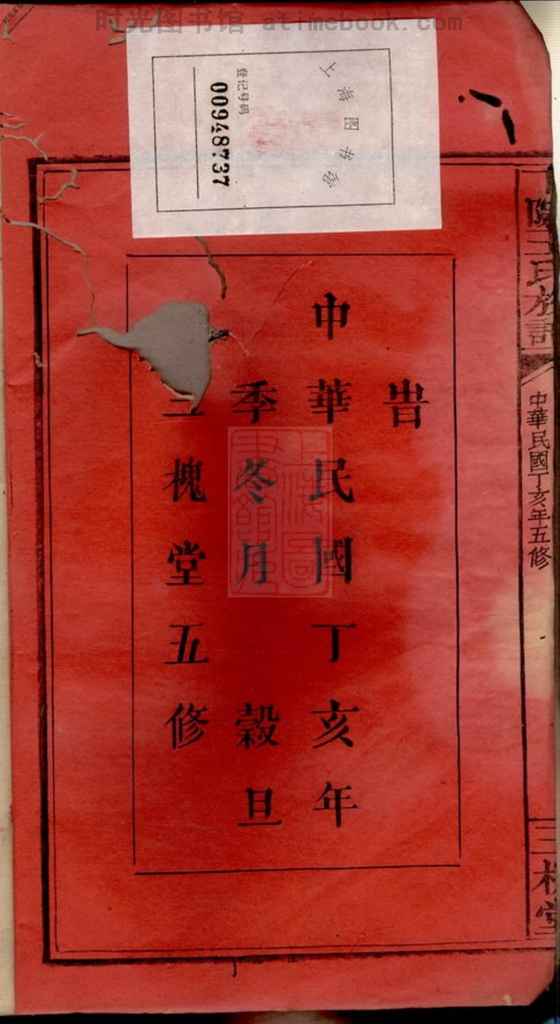 时光图书馆 atimebook.com
上海图书馆
登记号码
00948737
氏
中華民國丁亥年五修
三槐堂
旹
中華民國丁亥年
季冬月 穀旦
三槐堂五修